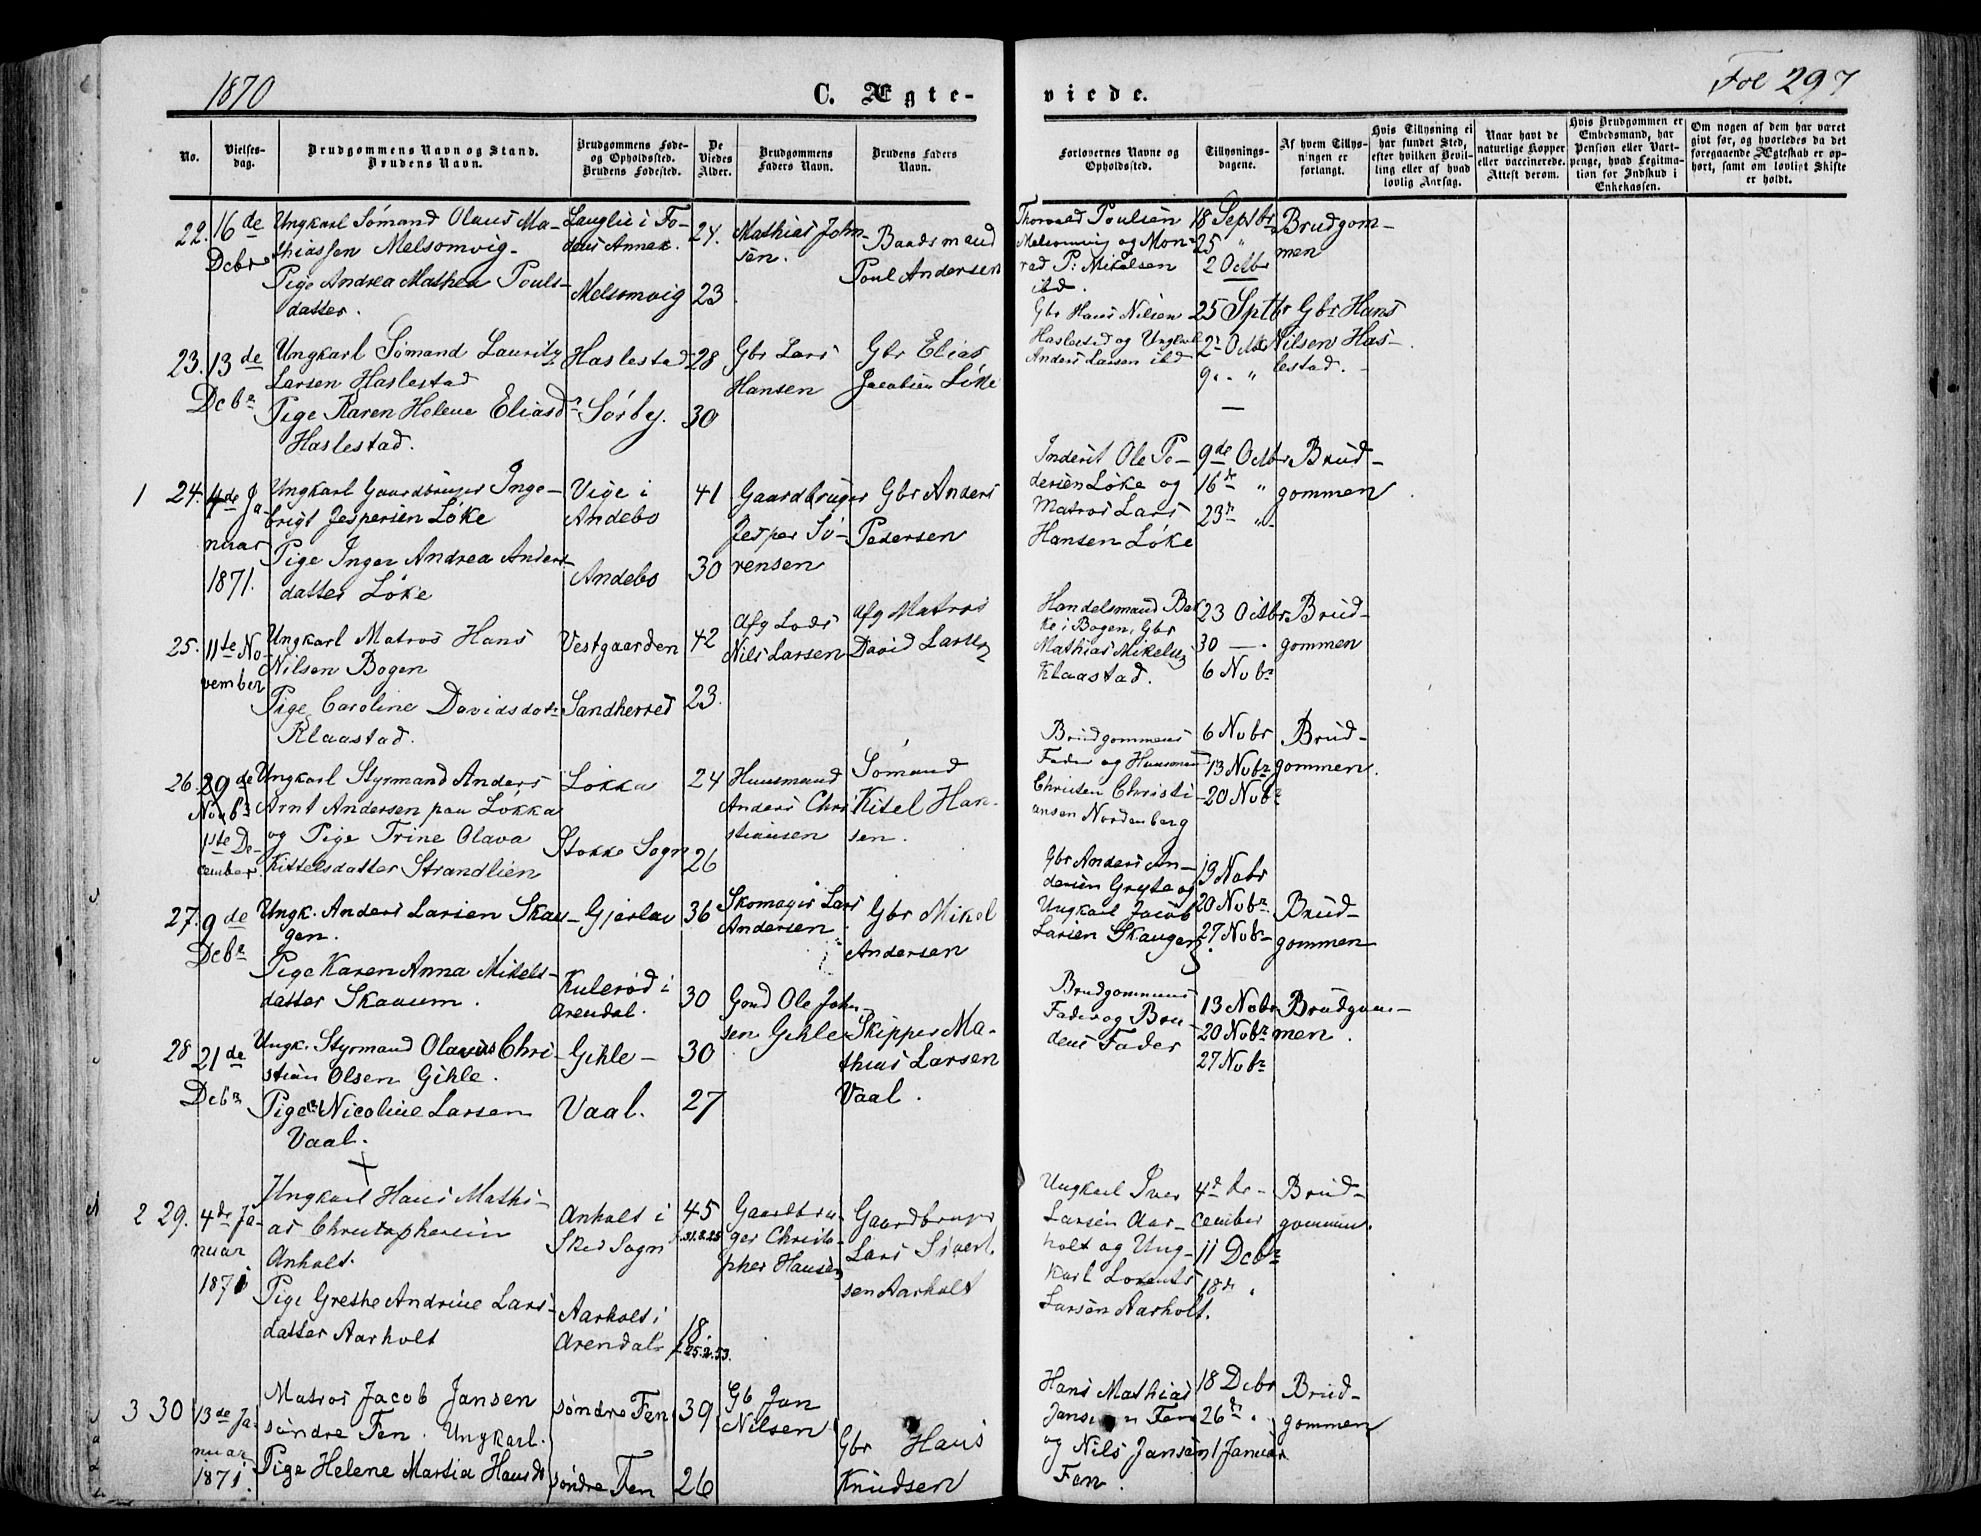 1870
C. Ægte-
viede.
Fol 297
No.
Vielses-
dag.
Brudgommens Navn og Stand.
Brudens Navn.
Brudgommens Føde-
og Opholdssted.
Brudens Fødested.
De
Viedes
Alder.
Brudgommens
Faders Navn.
Brudens Faders
Navn.
Forlovernes Navne og
Opholdssted.
Tillysnings-
dagene.
Af hvem Tillys-
ningen er
forlangt.
Hvis Tillysning ei
har fundet Sted,
efter hvilken Bevil-
ling eller af hvad
lovlig Aarsag.
Naar havt de
naturlige Kopper
eller vaccinerede.
Attest derom.
Hvis Brudgommen er
Embedsmand, har
Pension eller Vart-
penge, hvad Legitima-
tion for Indskud i
Enkekassen.
Om nogen af dem har været
gift før, og hvorledes da det
foregaaende Ægteskab er op-
hørt, samt om lovligt Skifte
er holdt.
22.
16de
Decbr
Ungkarl Sömand Olaus Ma-
thiassen Melsomvig-
Pige Andrea Mathea Pouls-
datter.
Melsomvig
24.
23
Mathias John
sen.
Baadsmand
Poul Andersen
Thorvald Poulsen
Melsomvig og Mon-
rad P: Mikelsen
ibd.
18 Septbr
25 "
2 Octbr
Brudgom-
men
23.
13de
Decbr
Ungkarl Sömand Lauritz
Larsen Haslestad
Pige Karen Helene Eliasd
Haslestad.
Haslestad
Sörby.
28
30
Gbr Lars
Hansen
Gbr Elias
Jacobsen Löke
Gbr Hans Nilsen
Haslestad og Ungkarl
Anders Larsen ibd
25 Sptbr
2 Octbr
9 " "
Gbr Hans
Nilsen Has-
lestad.
1
24.
4de Ja-
nuar
1871.
Ungkarl Gaardbruger Inge-
brigt Jespersen Löke
Pige Inger Andrea Anders
datter Löke
Vige i
Andebo
Andebo
41
30
Gaardbruger
Jesper Sö-
rensen
Gbr Anders
Pedersen
Inderst Ole Pe-
dersen Löke og
Matros Lars
Hansen Löke
9de Octbr
16de "
23de "
Brud-
gommen
25.
11te No-
vember
Ungkarl Matros Hans
Nilsen Bogen
Pige Caroline Davidsdatr
Klaastad.
Vestgaarden
Sandherred
42
23.
Afg Lods
Nils Larsen
Afg Matros
David Larsen
Handelsmand Bak
ke i Bogen, Gbr
Mathias Mikelsen
Klaastad.
23 Octbr
30 — .
6 Nobr
Brud-
gommen
26.
29de
Novbr
1ste De-
cember.
Ungkarl Styrmand Anders
Arnt Andersen paa Lökka
og Pige Trine Olava
Kittelsdatter Strandlien
Lökka
Stokke Sogn
24
26
Huusmand
Anders Chri
stiansen
Sömand
Kitel Han-
sen.
Brudgommens
Fader og Huusman
Christen Christi-
ansen Nordenberg
6 Nobr
13 Nobr
20 Nobr
Brud-
gommen.
27.
9de
Decbr
Ungk. Anders Larsen Skau-
gen.
Pige Karen Anna Mikels-
datter Skauum.
Kulerød i
Arendal.
36
30
Skomager Lars
Andersen
Gbr Mikel
Andersen
Gbr Anders An-
dersen Gryte og
Ungkarl Jacob
Larsen Skaugen
13 Nobr
20 Nobr
27 Nobr
Brud-
gommen
28
21de
Decbr
Ungk. Styrmand Olavus Chri-
stian Olsen Gihle.
Pige Nicoline Larsen
Vaal.
Gihle-
Vaal.
30
27
Gmd Ole John-
sen Gihle
Skipper Ma-
thias Larsen
Vaal.
Brudgommens
Fader og Bru-
dens Fader
13 Nobr
20 Nobr
27 Nobr
Brudgom-
men.
2
29.
4de Ja-
nuar
1871
Ungkarl Hans Mathi-
as Christophersen
Anholt.
Pige Grethe Andrine Lars-
datter Aarholt
Anholt i
Skee Sogn
Aarholt i
Arendal
45
18
f. 25.2.53.
Gaardbru-
ger Christo-
pher Hansen
Gaardbruger
Lars Sivert-
sen Aarholt
Ungkarl Iver
Larsen Aar-
holt og Ung-
karl Lorents
Larsen Aarholt.
4de De-
cember
11 Decbr
18de "
Brud-
gommen.
3
30
13de Ja-
nuar
1871.
Matros Jacob Jansen
söndre Fen. Ungkarl.
Pige Helene Martia Hansdr
söndre Fen
söndre Fen
39
26
Gb Jan
Nilsen
Gbr Hans
Knudsen
Hans Mathias
Jansen Fen
og Nils Jansen
Fen.
18 Debr
26de "
1 Januar
Brud-
gommen